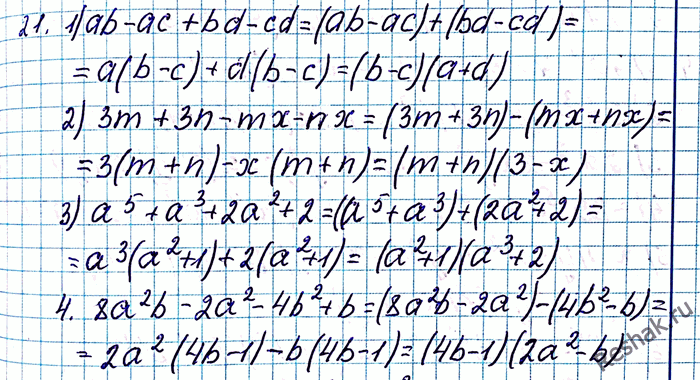 21. 1) ab - ac + bd - cd = (ab - ac) + (bd - cd) =
= a(b - c) + d(b - c) = (b - c)(a + d)
2) 3m + 3n - mx - nx = (3m + 3n) - (mx + nx) =
= 3(m + n) - x(m + n) = (m + n)(3 - x)
3) a⁵ + a³ + 2a² + 2 = (a⁵ + a³) + (2a² + 2) =
= a³(a² + 1) + 2(a² + 1) = (a² + 1)(a³ + 2)
4. 8a²b - 2a² - 4b² + b = (8a²b - 2a²) - (4b² - b) =
= 2a²(4b - 1) - b(4b - 1) = (4b - 1)(2a² - b)
reshak.ru